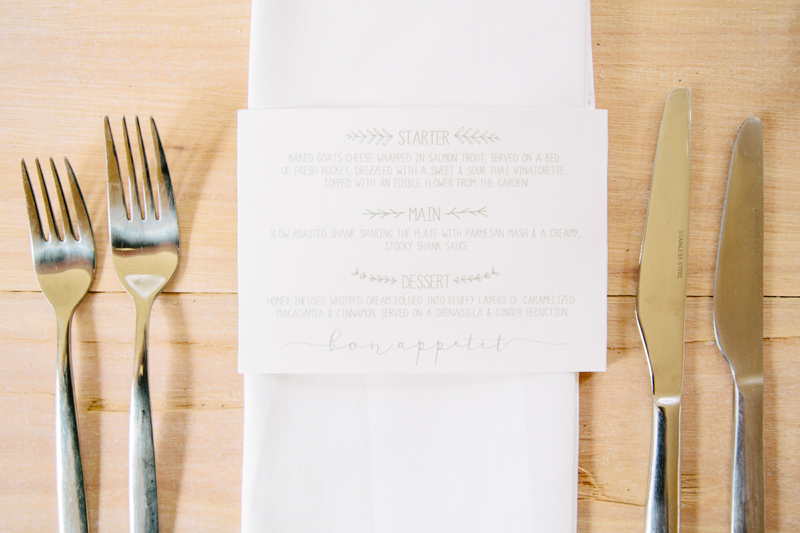 STARTER
BAKED GOATS CHEESE WRAPPED IN SALMON TROUT, SERVED ON A BED
OF FRESH ROCKET, DRIZZLED WITH A SWEET & SOUR THAI VINAIGRETTE
TOPPED WITH AN EDIBLE FLOWER FROM THE GARDEN!
MAIN
SLOW ROASTED SHANK SHARING THE PLATE WITH PARMESAN MASH & A CREAMY,
STOCKY SHANK SAUCE
DESSERT
HONEY INFUSED WHIPPED CREAM FOLDED INTO FLUFFY LAYERS OF CARAMELIZED
MACADAMIA & CINNAMON SERVED ON A GRENADILLA & GINGER REDUCTION
bon appetit
STAINLESS STEEL